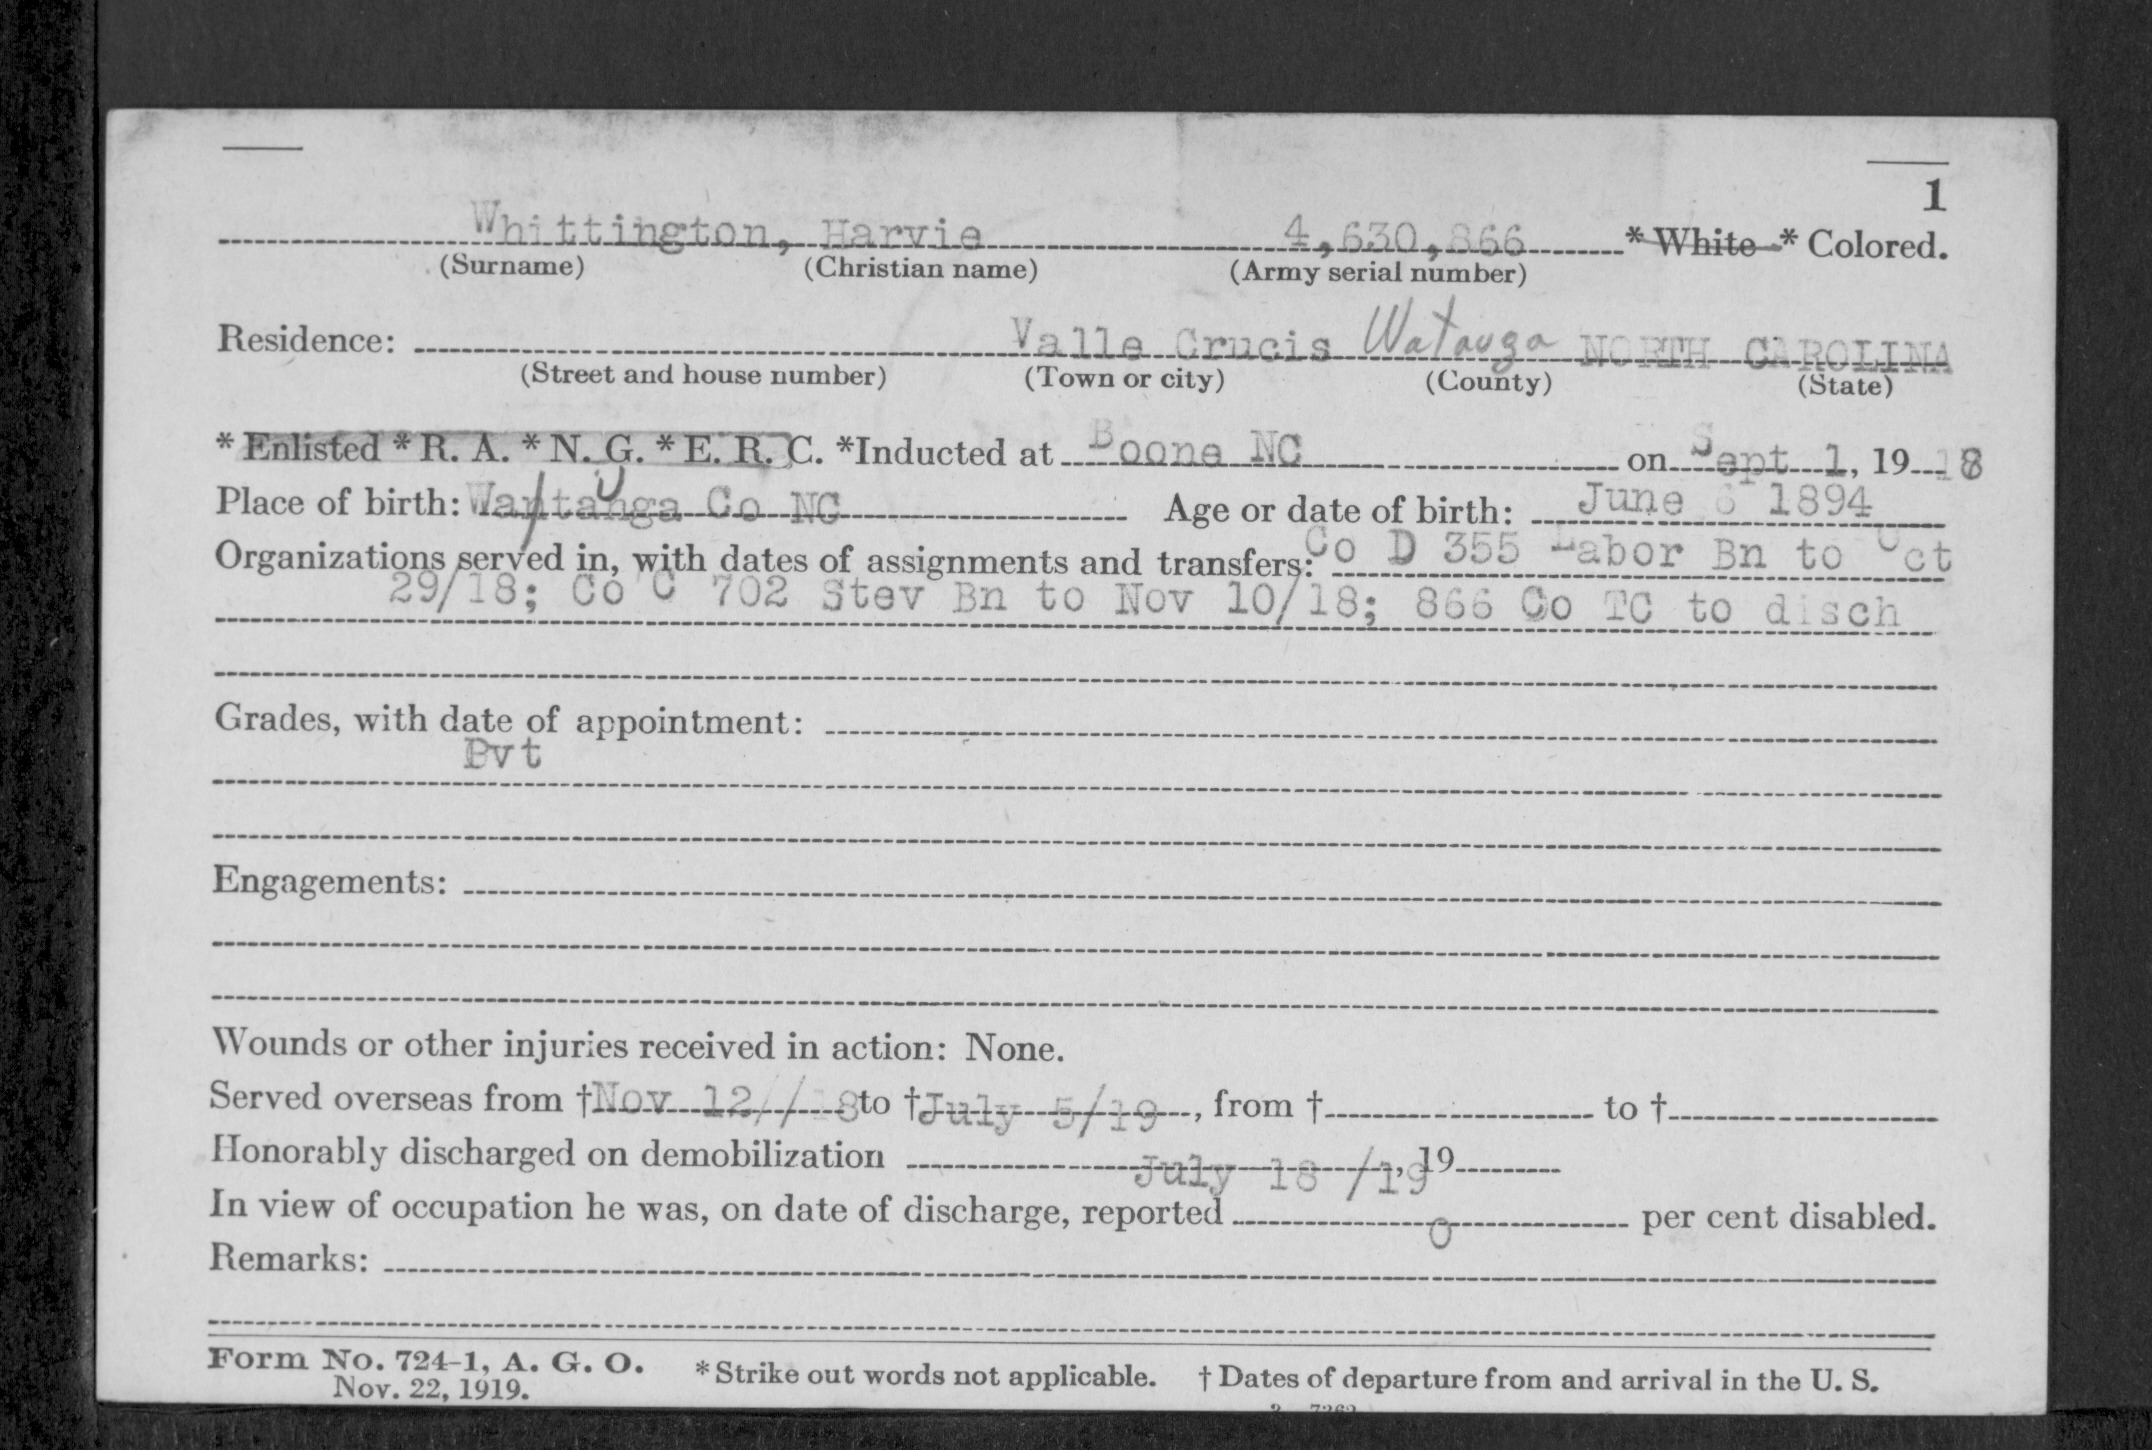 1
Whittington, Harvie 4,630,866 * White * Colored.
(Surname) (Christian name) (Army serial number)
Residence: Valle Crucis Watauga NORTH CAROLINA
(Street and house number) (Town or city) (County) (State)
* Enlisted * R. A. * N. G. * E. R. C. *Inducted at Boone NC on Sept 1, 19 18
Place of birth: Wantauga Co NC Age or date of birth: June 1894
Organizations served in, with dates of assignments and transfers: Co D 355 Labor Bn to Oct
29/18; Co C 702 Stev Bn to Nov 10/18; 866 Co TC to disch
Grades, with date of appointment:
Pvt
Engagements:
Wounds or other injuries received in action: None.
Served overseas from † Nov 12//18 to † July 5/19, from † to †
Honorably discharged on demobilization July 18 /19, 19
In view of occupation he was, on date of discharge, reported 0 per cent disabled.
Remarks:
Form No. 724-1, A. G. O. * Strike out words not applicable. † Dates of departure from and arrival in the U. S.
Nov. 22, 1919.